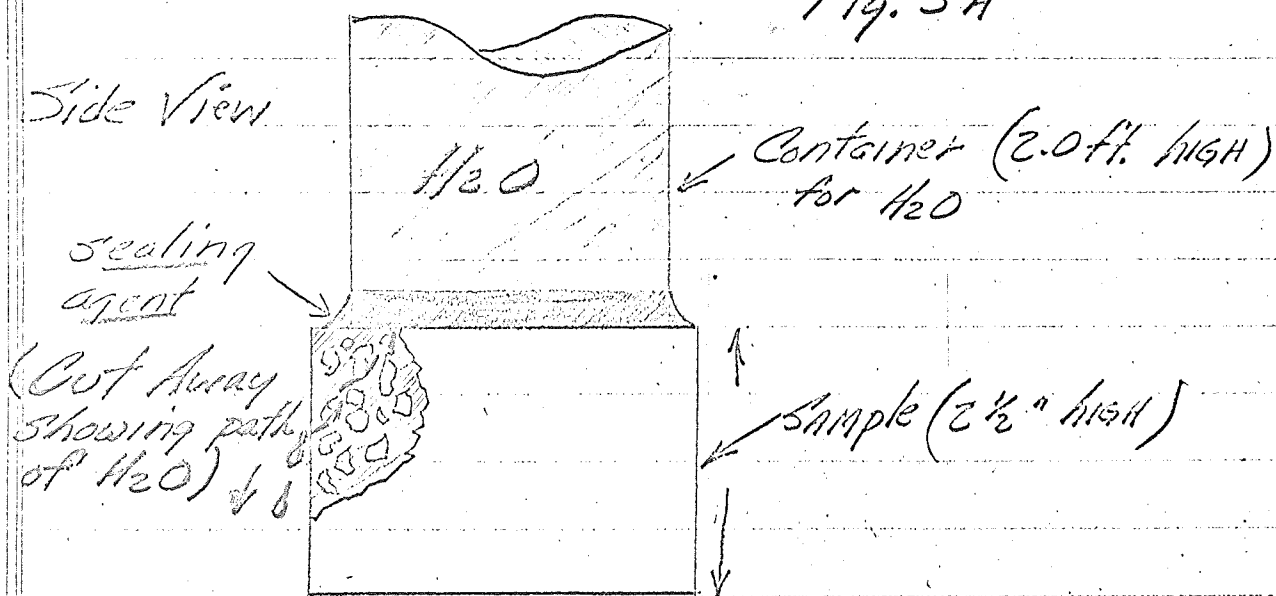 Fig. 3A
Side View
H2O
Container (2.0 ft. hIGH)
for H2O
sealing
agent
(Cut Away
showing path
of H2O)
SAmple (2 ½" hIGH)